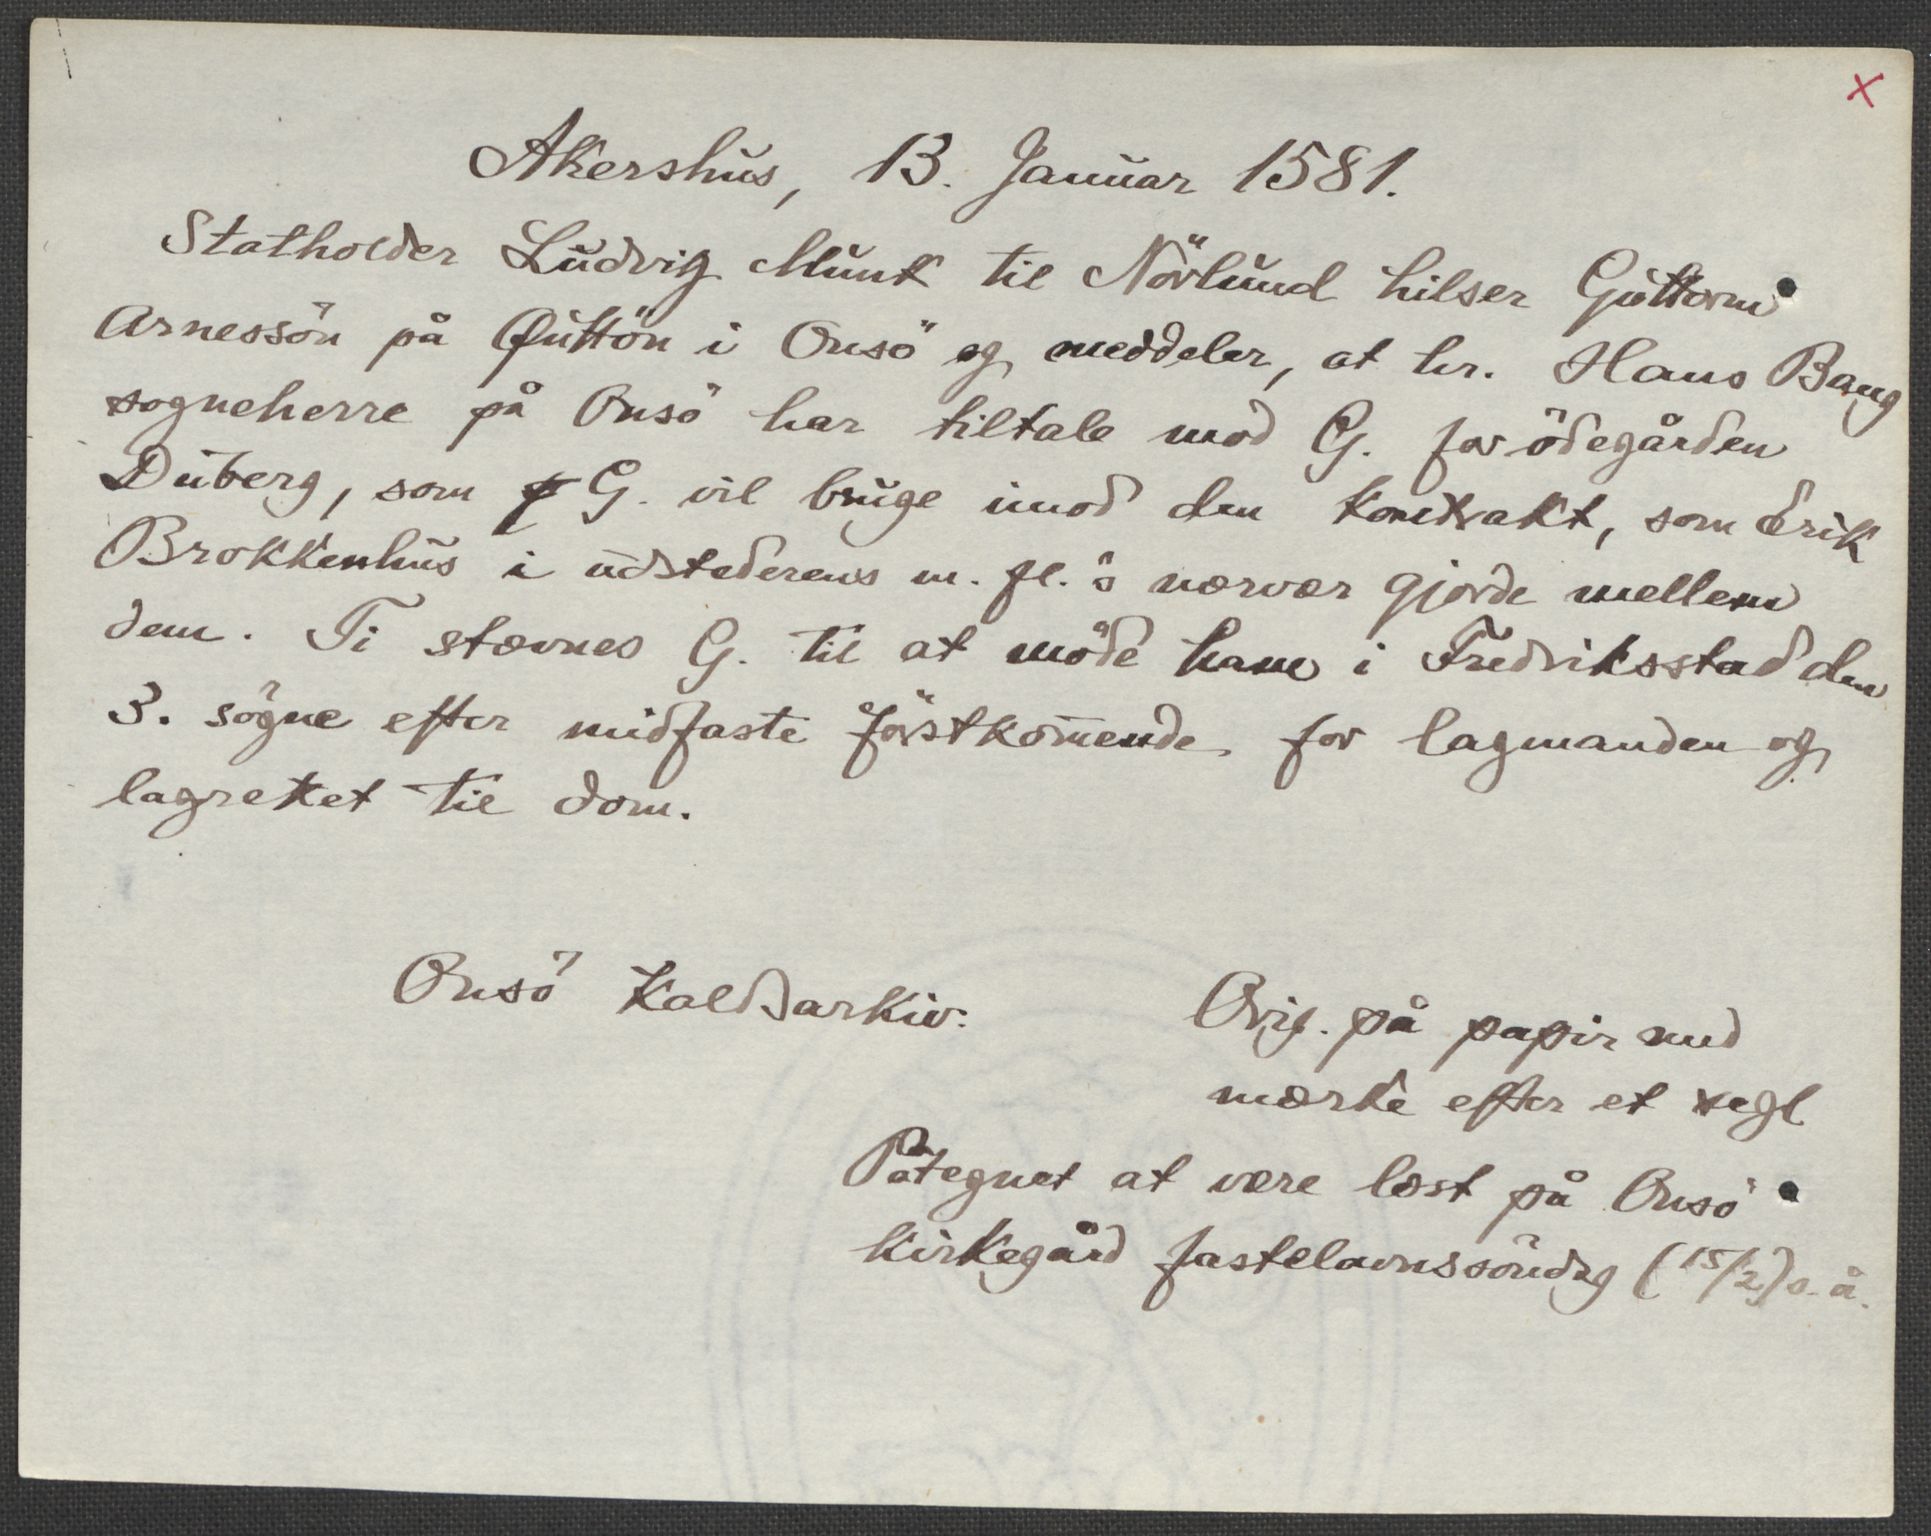 x
Akershus, 13. Januar 1581.
Statholder Ludvig Munk til Nörlund hilser Guttorm
Arnessön på Quttön i Onsö og meddeler, at hr. Hans Bang
sogneherre på Onsö har tiltale mod G. for ödegården
Duberg, som G. vil bruge imod den kontrakt, som Erik
Brokkenhus i udstederens m. fl.'s nærvær gjorde mellem
dem. Ti stævnes G. til at möde ham i Fredriksstad den
3. sögne efter midfaste förstkom̄ende for lagmanden og
lagrettet til dom.
Onsö kaldsarkiv.
Orig. på papir med
mærke efter et segl
Påtegnet at være læst på Onsö
kirkegård fastelavnssöndag (15/2) s. å.